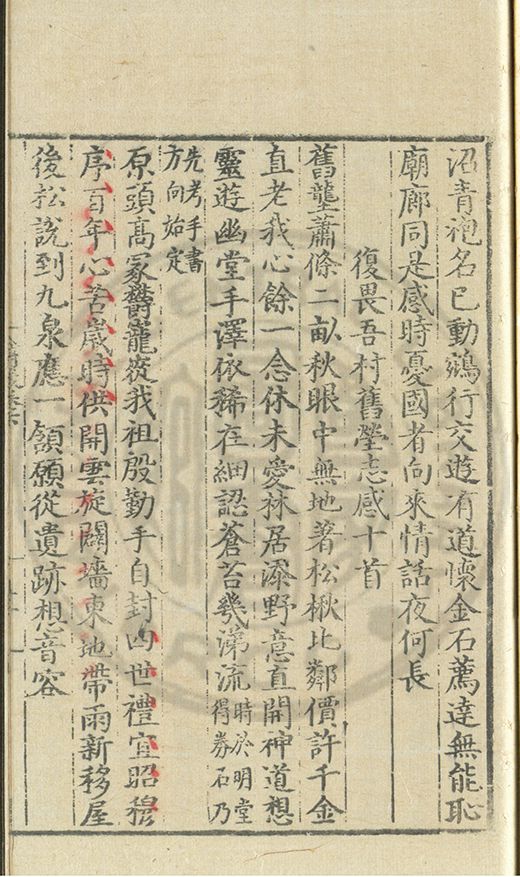 沼青袍名已動鵷行交遊有道懷金石薦達無能恥
廟廊同是感時憂國者向來情話夜何長
復畏吾村舊塋志感十首
舊壟蕭條二畝秋眼中無地著松楸比鄰價許千金
直老我心餘一念休未愛林居添野意直開神道想
靈遊幽堂手澤依稀在細認蒼苔幾涕流時於明堂得券石乃
先考手書方向始定
原頭高冢鬱巃嵸我祖殷勤手自封四世禮宜昭穆
序百年心苦歲時供開雲旋闢墻東地帶雨新移屋
後松說到九泉應一頷願從遺跡想音容